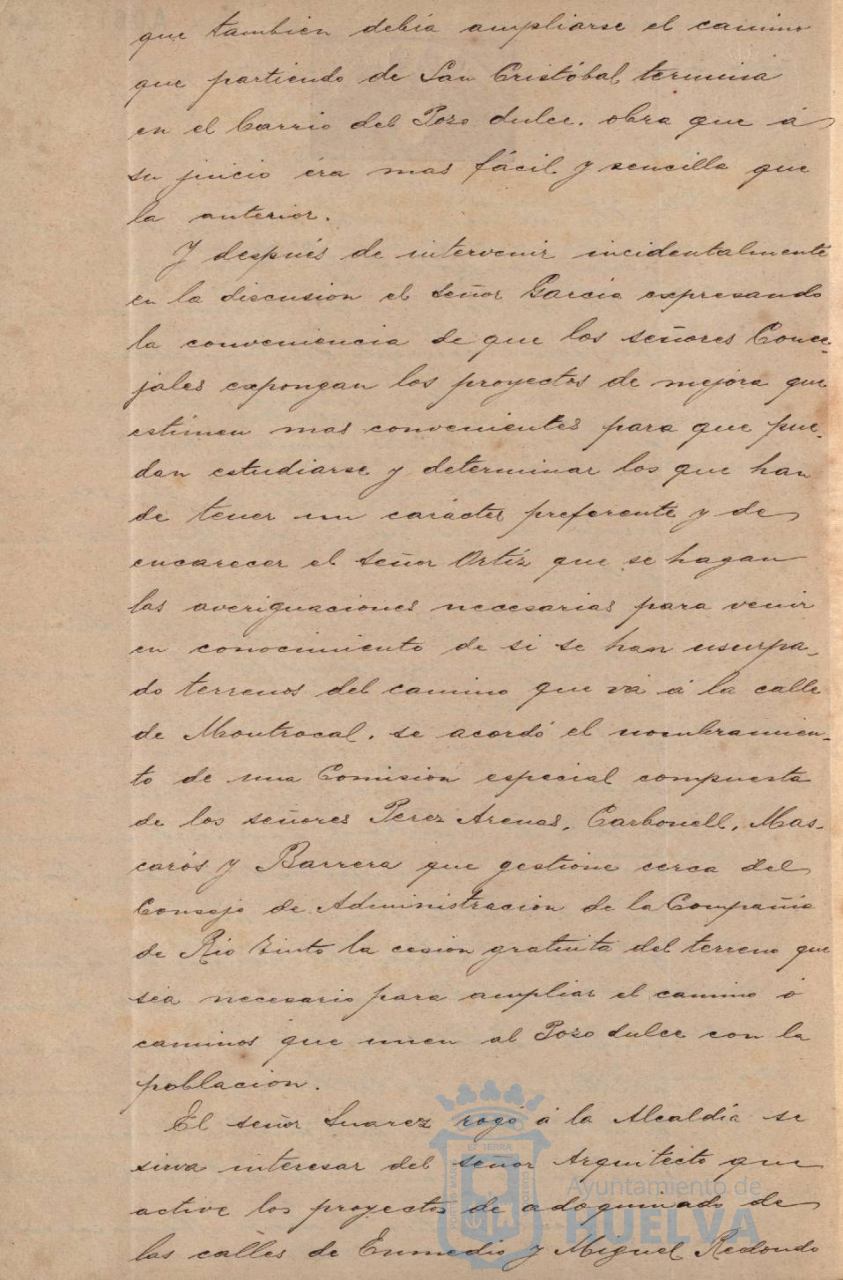 que tambien debía ampliarse el camino
que partiendo de San Cristóbal termina
en el barrio del Pozo dulce. obra que á
su juicio éra mas fácil y sencilla que
la anterior.
Y después de intervenir incidentalmente
en la discusion el señor García expresando
la conveniencia de que los señores Conce-
jales expongan los proyectos de mejora que
estimen mas convenientes para que pue-
dan estudiarse y determinar los que han
de tener un carácter preferente y de
encarecer el señor Ortíz que se hagan
las averiguaciones necesarias para venir
en conocimiento de si se han usurpa-
do terrenos del camino que vá á la calle
de Montrocal. se acordó el nombramien-
to de una Comisión especial compuesta
de los señores Perez Arenas, Carbonell, Mas-
carós y Barrera que gestione cerca del
Consejo de Administración de la Compañía
de Rio Tinto la cesión gratuita del terreno que
séa necesario para ampliar el camino ó
caminos que unen al Pozo dulce con la
población.
El señor Suarez rogó á la Alcaldía se
sirva interesar del señor Arquitecto que
active los proyectos de adoquinado de
las calles de Enmedio y Miguel Redondo
Ayuntamiento de
HUELVA